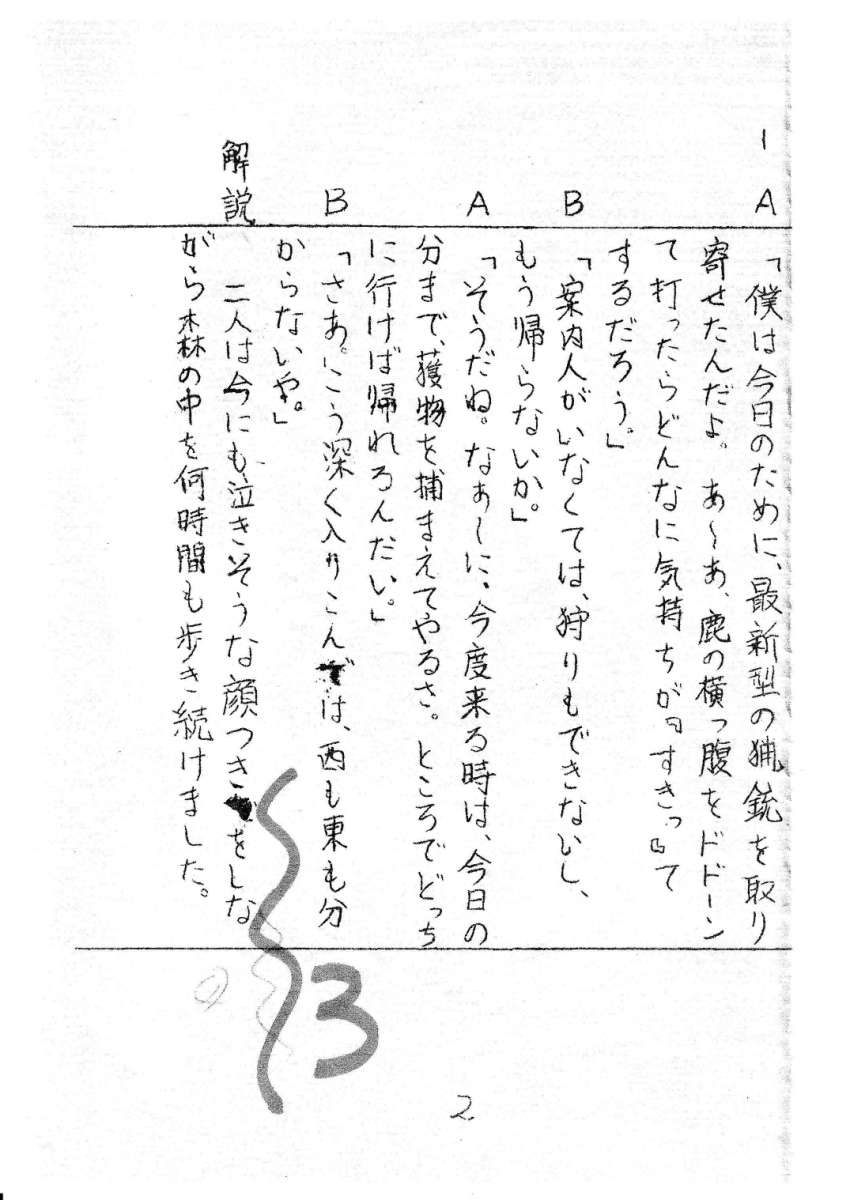 1 A 「僕は今日のために、最新型の猟銃を取り
寄せたんだよ。あ〜あ、鹿の横っ腹をドドーン
て打ったらどんなに気持ちが『すきっ』て
するだろう。」
B 「案内人がいなくては、狩りもできないし、
もう帰らないか。」
A 「そうだね。なぁーに、今度来る時は、今日の
分まで、獲物を捕まえてやるさ。ところでどっち
に行けば帰れるんだい。」
B 「さあ。こう深く入りこんでは、西も東も分
からないや。」
解説 二人は今にも、泣きそうな顔つきをしな
がら森の中を何時間も歩き続けました。
3
2